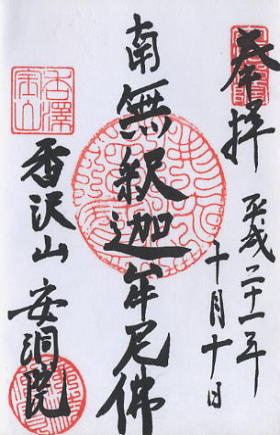 奉拝
平成二十一年
十月十日
南無釈迦牟尼佛
香沢山
安洞院